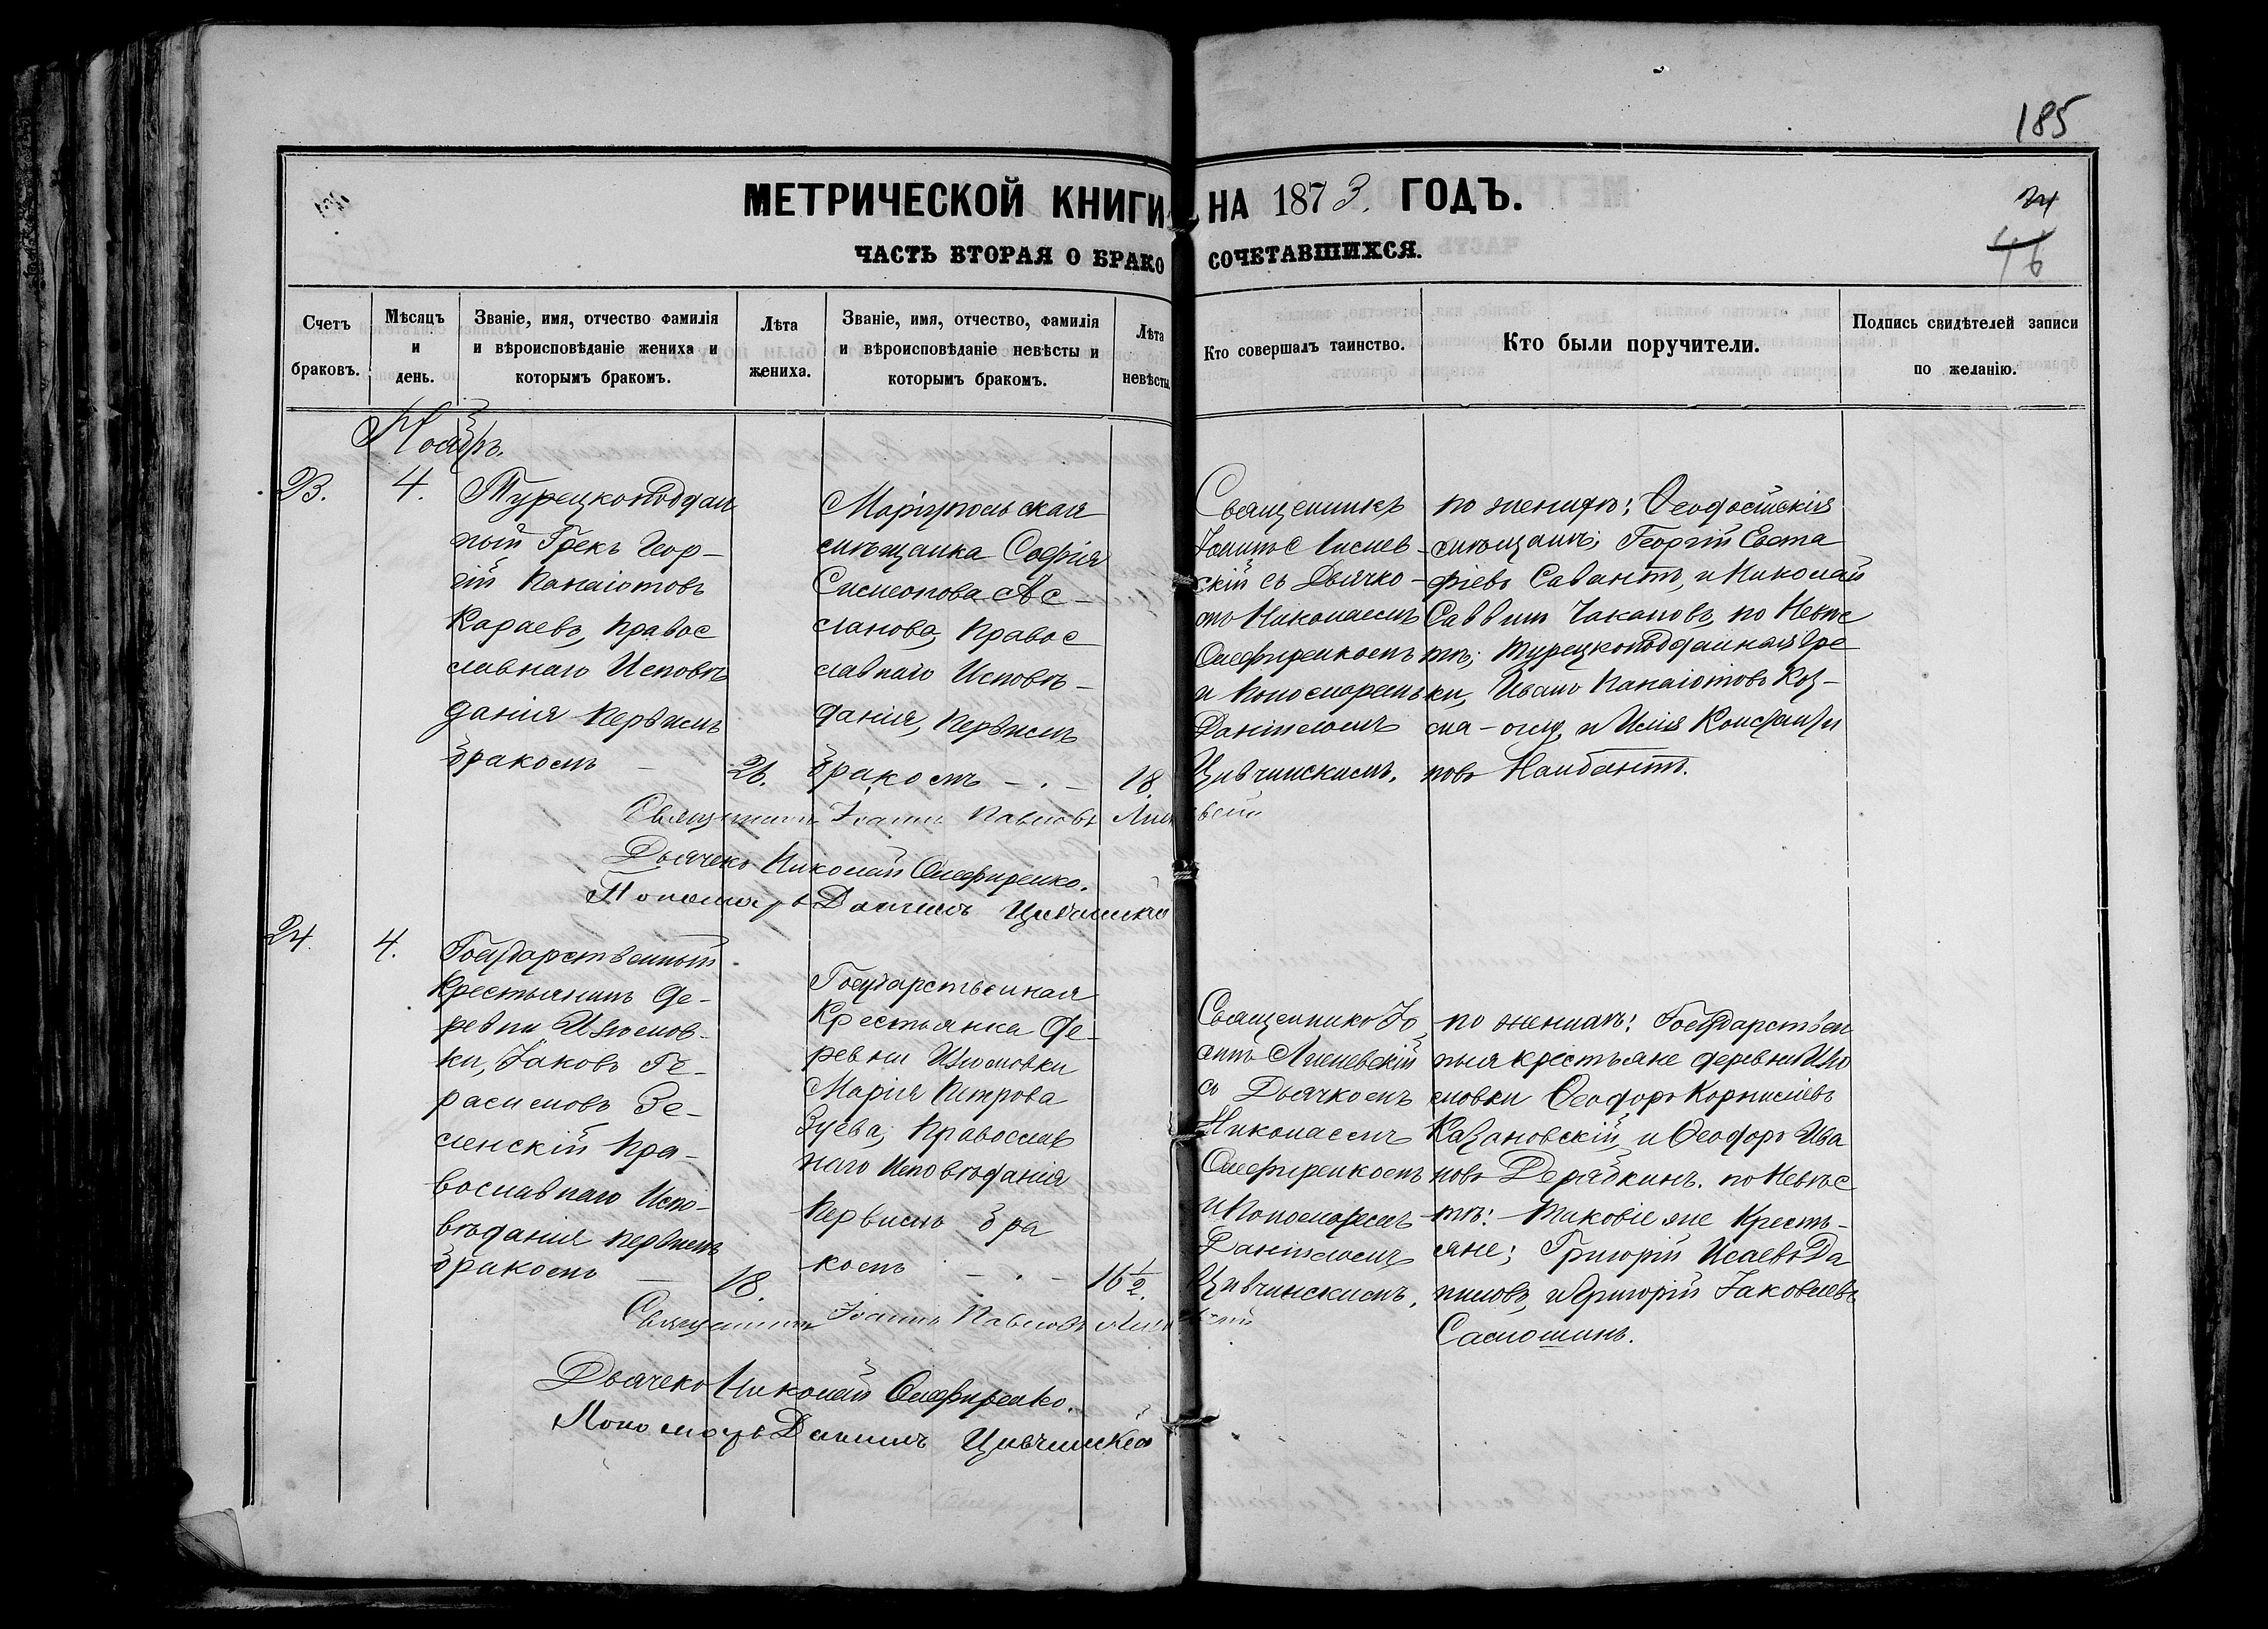 185
МЕТРИЧЕСКОЙ КНИГИ НА 1873. ГОДЪ.
24
46
ЧАСТЬ ВТОРАЯ О БРАКОСОЧЕТАВШИХСЯ.
Счетъ браковъ.
Мѣсяцъ и день.
Званіе, имя, отчество фамилія и вѣроисповѣданіе жениха и которымъ бракомъ.
Лѣта жениха.
Званіе, имя, отчество, фамилія и вѣроисповѣданіе невѣсты и которымъ бракомъ.
Лѣта невѣсты.
Кто совершалъ таинство.
Кто были поручители.
Подпись свидѣтелей записи по желанію.
Ноябрь.
23.
4.
Турецкоподдан
ный Грекъ Геор-
гій Панаіотовъ
Караевъ, Правос
славнаго Исповѣ
данія Первымъ
бракомъ —
26.
Маріупольская
мѣщанка Софія
Симеонова Ас-
ланова, Правос
славнаго Исповѣ-
данія, Первымъ
бракомъ – . –
18.
Священникъ
Іоаннъ Лиснев-
скій съ Дьячко-
мъ Николаемъ
Олефиренкомъ
и Пономаремъ
Даніиломъ
Цивчинскимъ.
по женихѣ: Ѳеодосійскія
мѣщане; Георгій Евста
фіевъ Савантъ, и Николай
Саввинъ Чакаловъ, по Невѣс
тѣ; Турецкоподданныя Гре
ки, Иванъ Панаіотовъ Коз-
ма-оглу, и Илія Константи
новъ Наибантъ.
Священникъ Іоаннъ Павловъ
Дьячекъ Николай Олефиренко.
Пономарь Даніилъ Цивчинскій
24.
4.
Государственный
Крестьянинъ де-
ревни Изюмов-
ки, Іаковъ Ге-
расимовъ Зе-
ленскій Пра-
вославнаго Испо-
вѣданія первымъ
бракомъ —
18.
Государственная
Крестьянка де-
ревни Изюмовки
Марія Петрова
Зуева, Православ
наго Исповѣданія
Первымъ бра
комъ – . –
16 1/2.
Священникъ Іо
аннъ Лисневскій
съ Дьячкомъ
Николаемъ
Олефиренкомъ
и Пономаремъ
Даніиломъ
Цивчинскимъ.
по женихѣ: Государствен
ныя крестьяне деревни Изю
мовки Ѳеодоръ Корнилiевъ
Казановскій, и Ѳеодоръ Ива
новъ Дерябкинъ. по Невѣс
тѣ: таковіе же Кресть-
яне; Григорій Исаевъ Да
ниловъ, и Григорій Іаковлевъ
Самошинъ.
Священникъ Іоаннъ Павловъ
Дьячекъ Николай Олефиренко.
Пономарь Даніилъ Цивчинскій